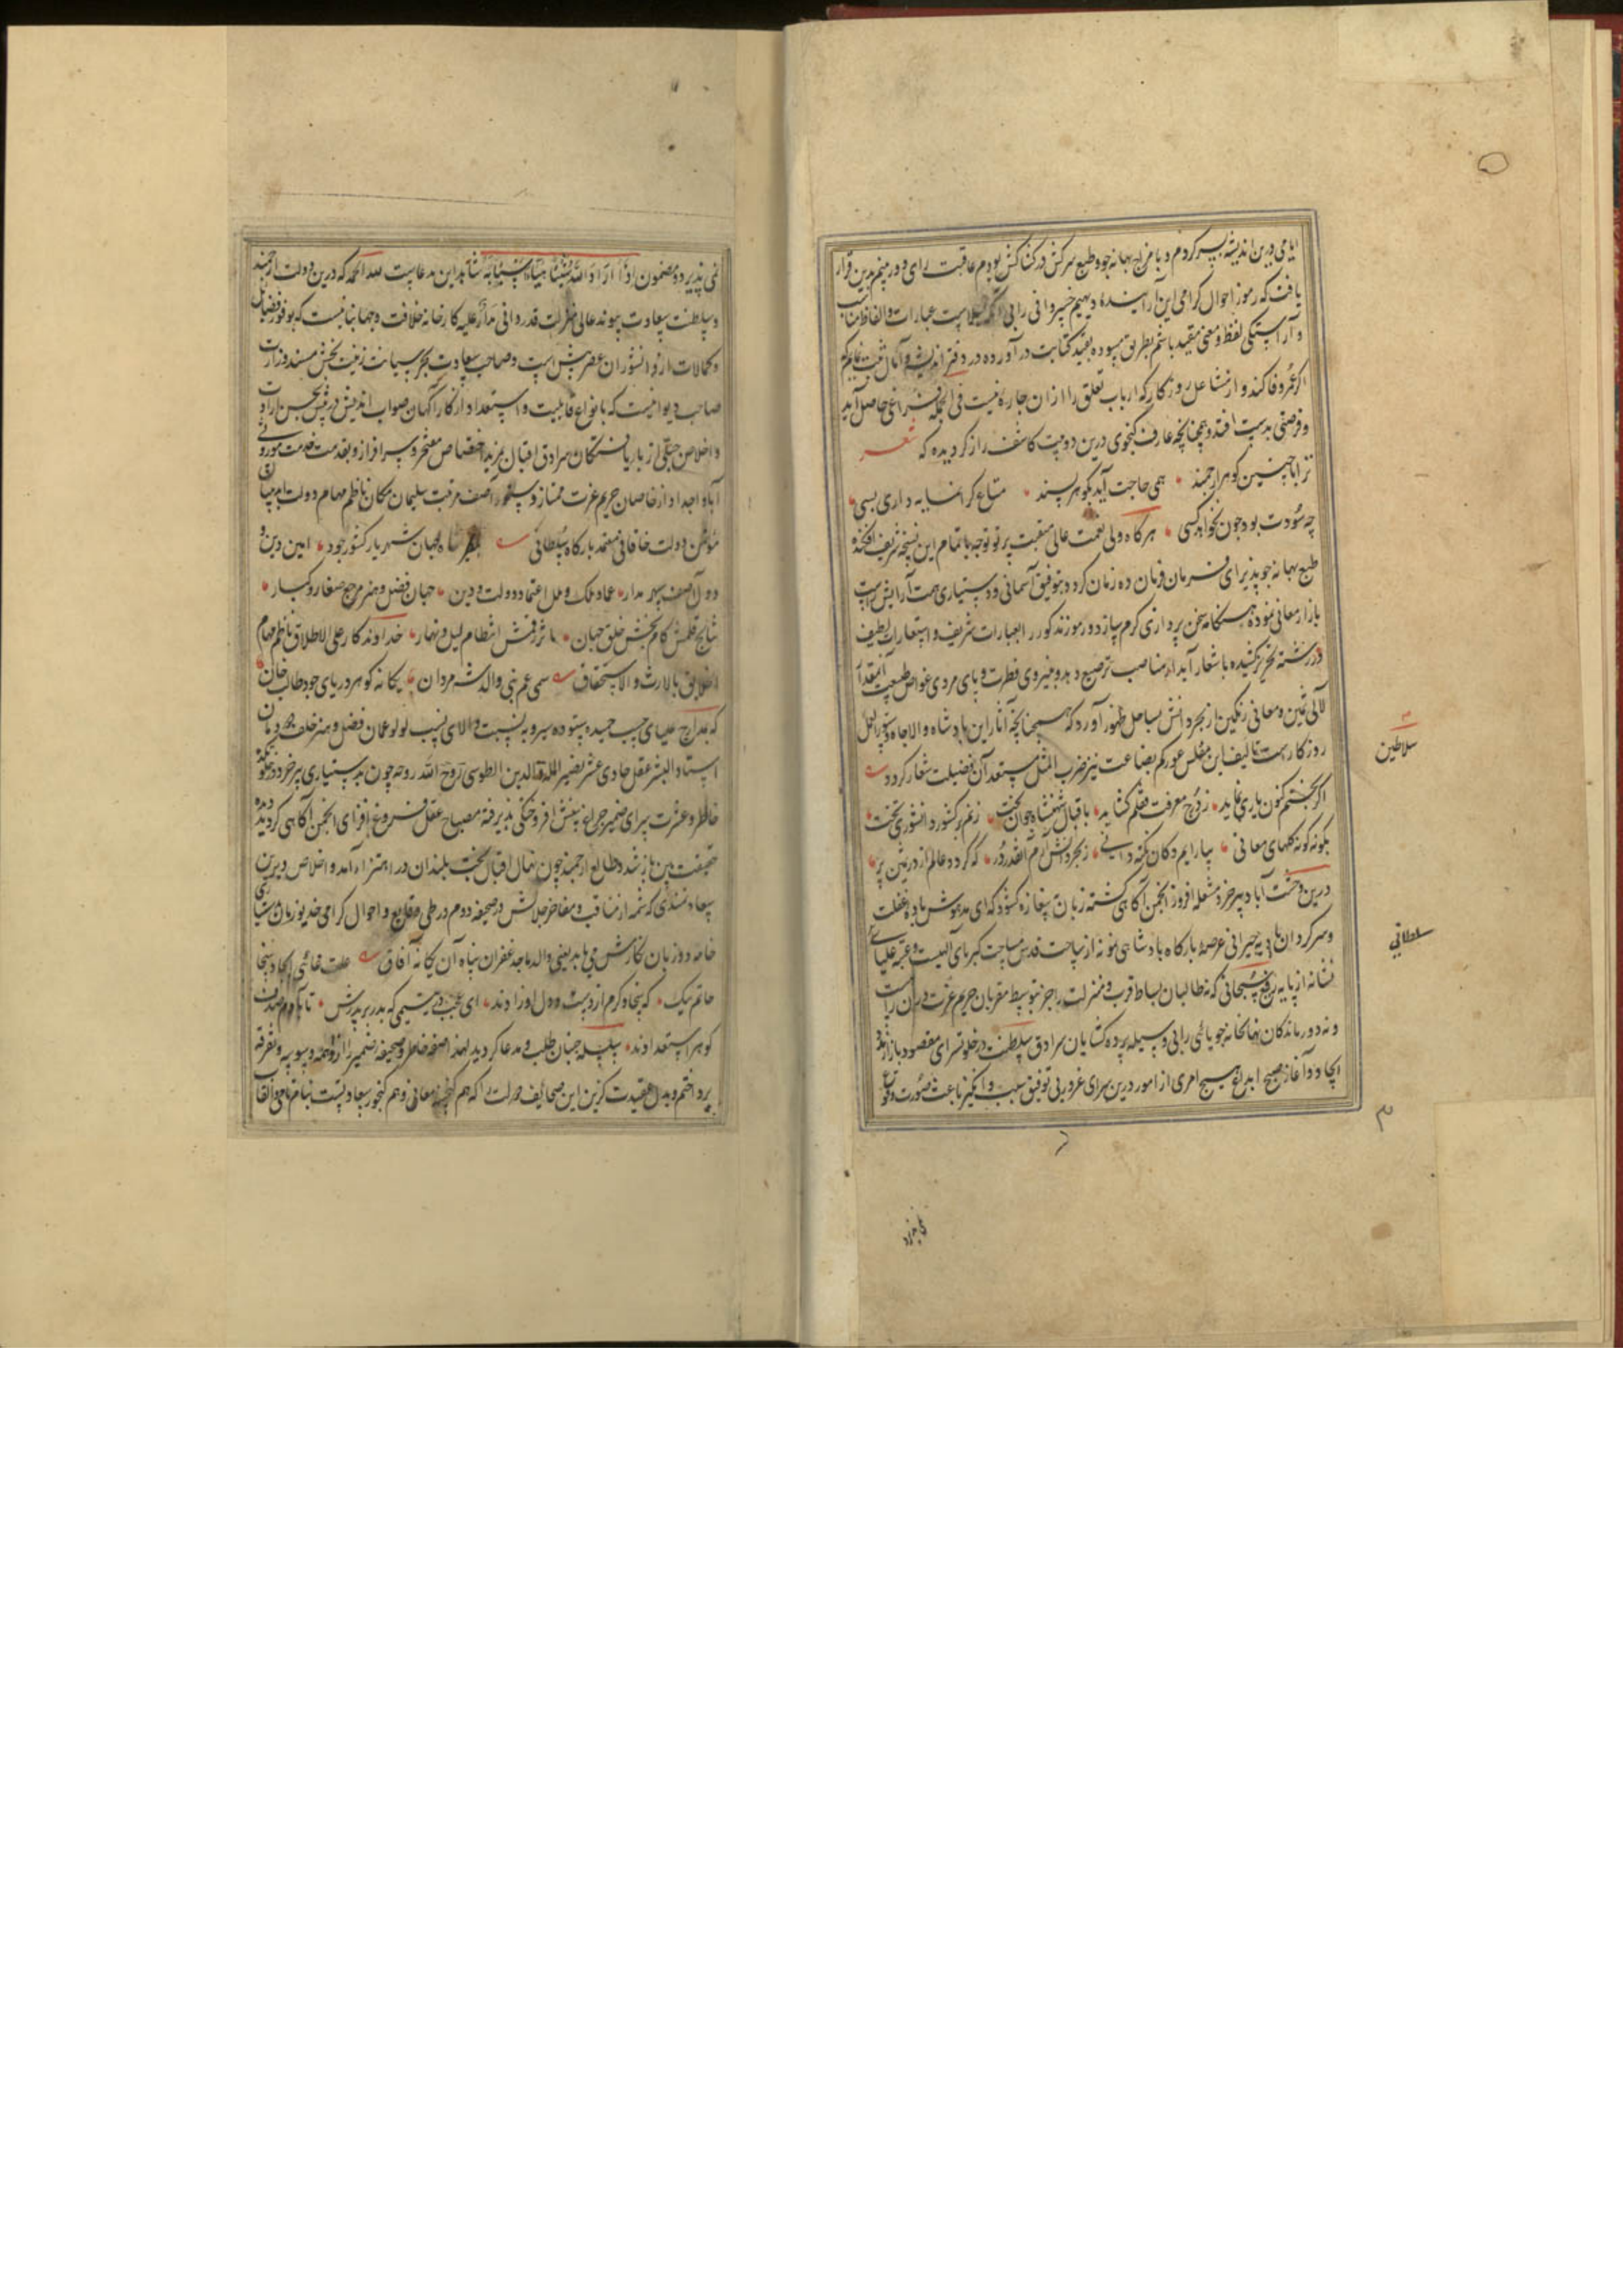 ایامی درین اندیشه بسر کردم و با مزاج بهانه جو و طبع سرکش در کشاکش بودم عاقبت رای دوربینم برین قرار
یافت که رموز احوال گرامی این آراینده دیهیم خسروانی را بی آنکه بسلاست عبارات و الفاظ مناسب
و آراستگی لفظ و معنی مقید باشم بطریق مسوده بقید کتابت در آورده در دفتر اندیشه و آمال ثبت نمایم که
اگر عمر وفا کند و از مشاغل روزگار که ارباب تعلق را از آن چاره نیست فی الجمله فراغی حاصل آید
و فرصتی بدست افتد و همچنانچه عارف گنجوی درین دو بیت کاشف راز گردیده که شعر
ترا با چنین گوهر ارجمند همی حاجت آید بگوهر پسند متاع گرانمایه داری بسی
چه سودت بود چون نخواهد کسی هرگاه ولی نعمت عالی منقبت پرتو توجه باتمام این نسخه شریف افکنده
طبع بهانه جو پذیرای فرمان فرمان ده زمان گردد بتوفیق آسمانی و دستیاری همت آرایش است
بازار معانی نموده هنگامه سخن پردازی گرم سازد و رموز مذکور را بعبارات شریف و استعارات لطیف
در رشته تحریر کشیده باشعار آبدار مناصب ترصیع دهد و بنیروی فطرت و پای مردی غواص طبیعت آنمقدار
لآلی ثمین و معانی رنگین از بحر دانش بساحل ظهور آورد که همچنانچه آثار این پادشاه والاجاه دستورالعمل
روزگار است تالیف این مفلس عور کم بضاعت نیز ضرب المثل مستعدان فضیلت شعار گردد
اگر بختم کنون یاری نماید ز گنج معرفت قفلم گشاید باقبال شهنشاه جوان بخت زنم بر کشور دانشوری تخت
بگونه گونه گلهای معانی بیارایم دکان نکته دانی ز بحر دانش آرم آنقدر در که گردد عالم از در ثمین پر
درین وحشت آباد پیر خرد مشعله افروز انجمن آگاهی گشته زبان بیغاره گشود که ای مدهوش باده غفلت
و سرگردان بادیه حیرانی عرصه بارگاه پادشاهی نمونه از ساحت قدس مساحت کبریای آلهیست و عتبه علیای
نشانه از پایه رفیع سبحانی که نه طالبان بساط قرب و منزلت را جز بتوسط مقربان حریم عزت در آن راهست
و نه دورماندگان نهانخانه جویائی را بی وسیله پرده گشایان سرادق سلطنت در خلوتسرای مقصود بار از بدو
ایجاد و آغاز صبح ابداع هیچ امری از امور درین سرای غرور بی توفیق سبب و انگیز باعث صورت وقوع
سلاطین
سلطانی
نمی پذیرد و مضمون اذا اراد الله شیئا هیأ اسبابه شاهد این مدعاست لله الحمد که درین دولت ارجمند
و سلطنت سعادت پیوند عالی منزلت قدردانی مدار علیه کارخانه خلافت و جهانبانیست که بوفور فضایل
و کمالات از دانشوران عصر بیش است و صاحب سعادت بحر سیاست زینت بخش مسند وزارت
صاحب دیوانیست که بانواع قابلیت و استعداد از کارآگهان صواب اندیش در پیش بحسن ارادت
و اخلاص حقیقی از باریافتگان سرادق اقبال بمزید اختصاص مفتخر و سرافراز و بقدمت خدمت موروثی
آبا و اجداد از خاصان حریم عزت ممتاز دستور آصف مرتبت سلیمان مکان ناظم مهام دولت
مؤتمن دولت خاقانی معتمد بارگاه سلطانی شاه جهان شهریار کشور جود امین دین و
دول آصف سپهر مدار عماد ملک و ملل اعتماد دولت و دین جهان فضل و هنر مرجع صغار و کبار
نتایج قلمش کام بخش خلق جهان مآثر رقمش انتظام لیل و نهار خداوندگار علی الاطلاق ناظم مهام
الخلایق بالارث و الاستحقاق سمی عم نبی والد شه مردان یگانه گوهر دریای جود طالب خان
که بمدارج علیای حسب حمیده ستوده سیر و به نسبت والای نسب لولو عمان فضل و هنر خلف دودمان
استاد البشر عقل حادی عشر نصیر الملة و الدین الطوسی روح الله روحه چون بدستیاری پیر خرد
خاطر و عشرت سرای ضمیر چراغ بینش افروختگی پذیرفته مصباح عقل فروغ افزای انجمن آگاهی گردید دیده
حقیقت بین باز شد و طالع ارجمند چون نهال اقبال بخت بلندان در اهتزاز آمد و اخلاص دیرین
سعادتمندی که شمه از مناقب و مفاخر جلالش در صحیفه دوم در طی وقایع و احوال گرامی خدیو زمان
خامه دو زبان نگارش می یابد یعنی والد ماجد غفران پناه آن یگانه آفاق علت غائی ایجاد سخا
حاتم بیک که پنجاه کرم از دست و دل او زادند ای عجب در یتیمی که بدر برش تا بآدم همه
گوهر استعدادند سلسله جنبان طلب و مدعا گردید لهذا صفحه خاطر و صحیفه ضمیر را از واهمه وسوسه و تفرقه
پرداختم و بدل عقیدت گزین این صحائف دولت را که هم گنجینه معانی و هم گنجور سعادتست بنام نامی و القاب